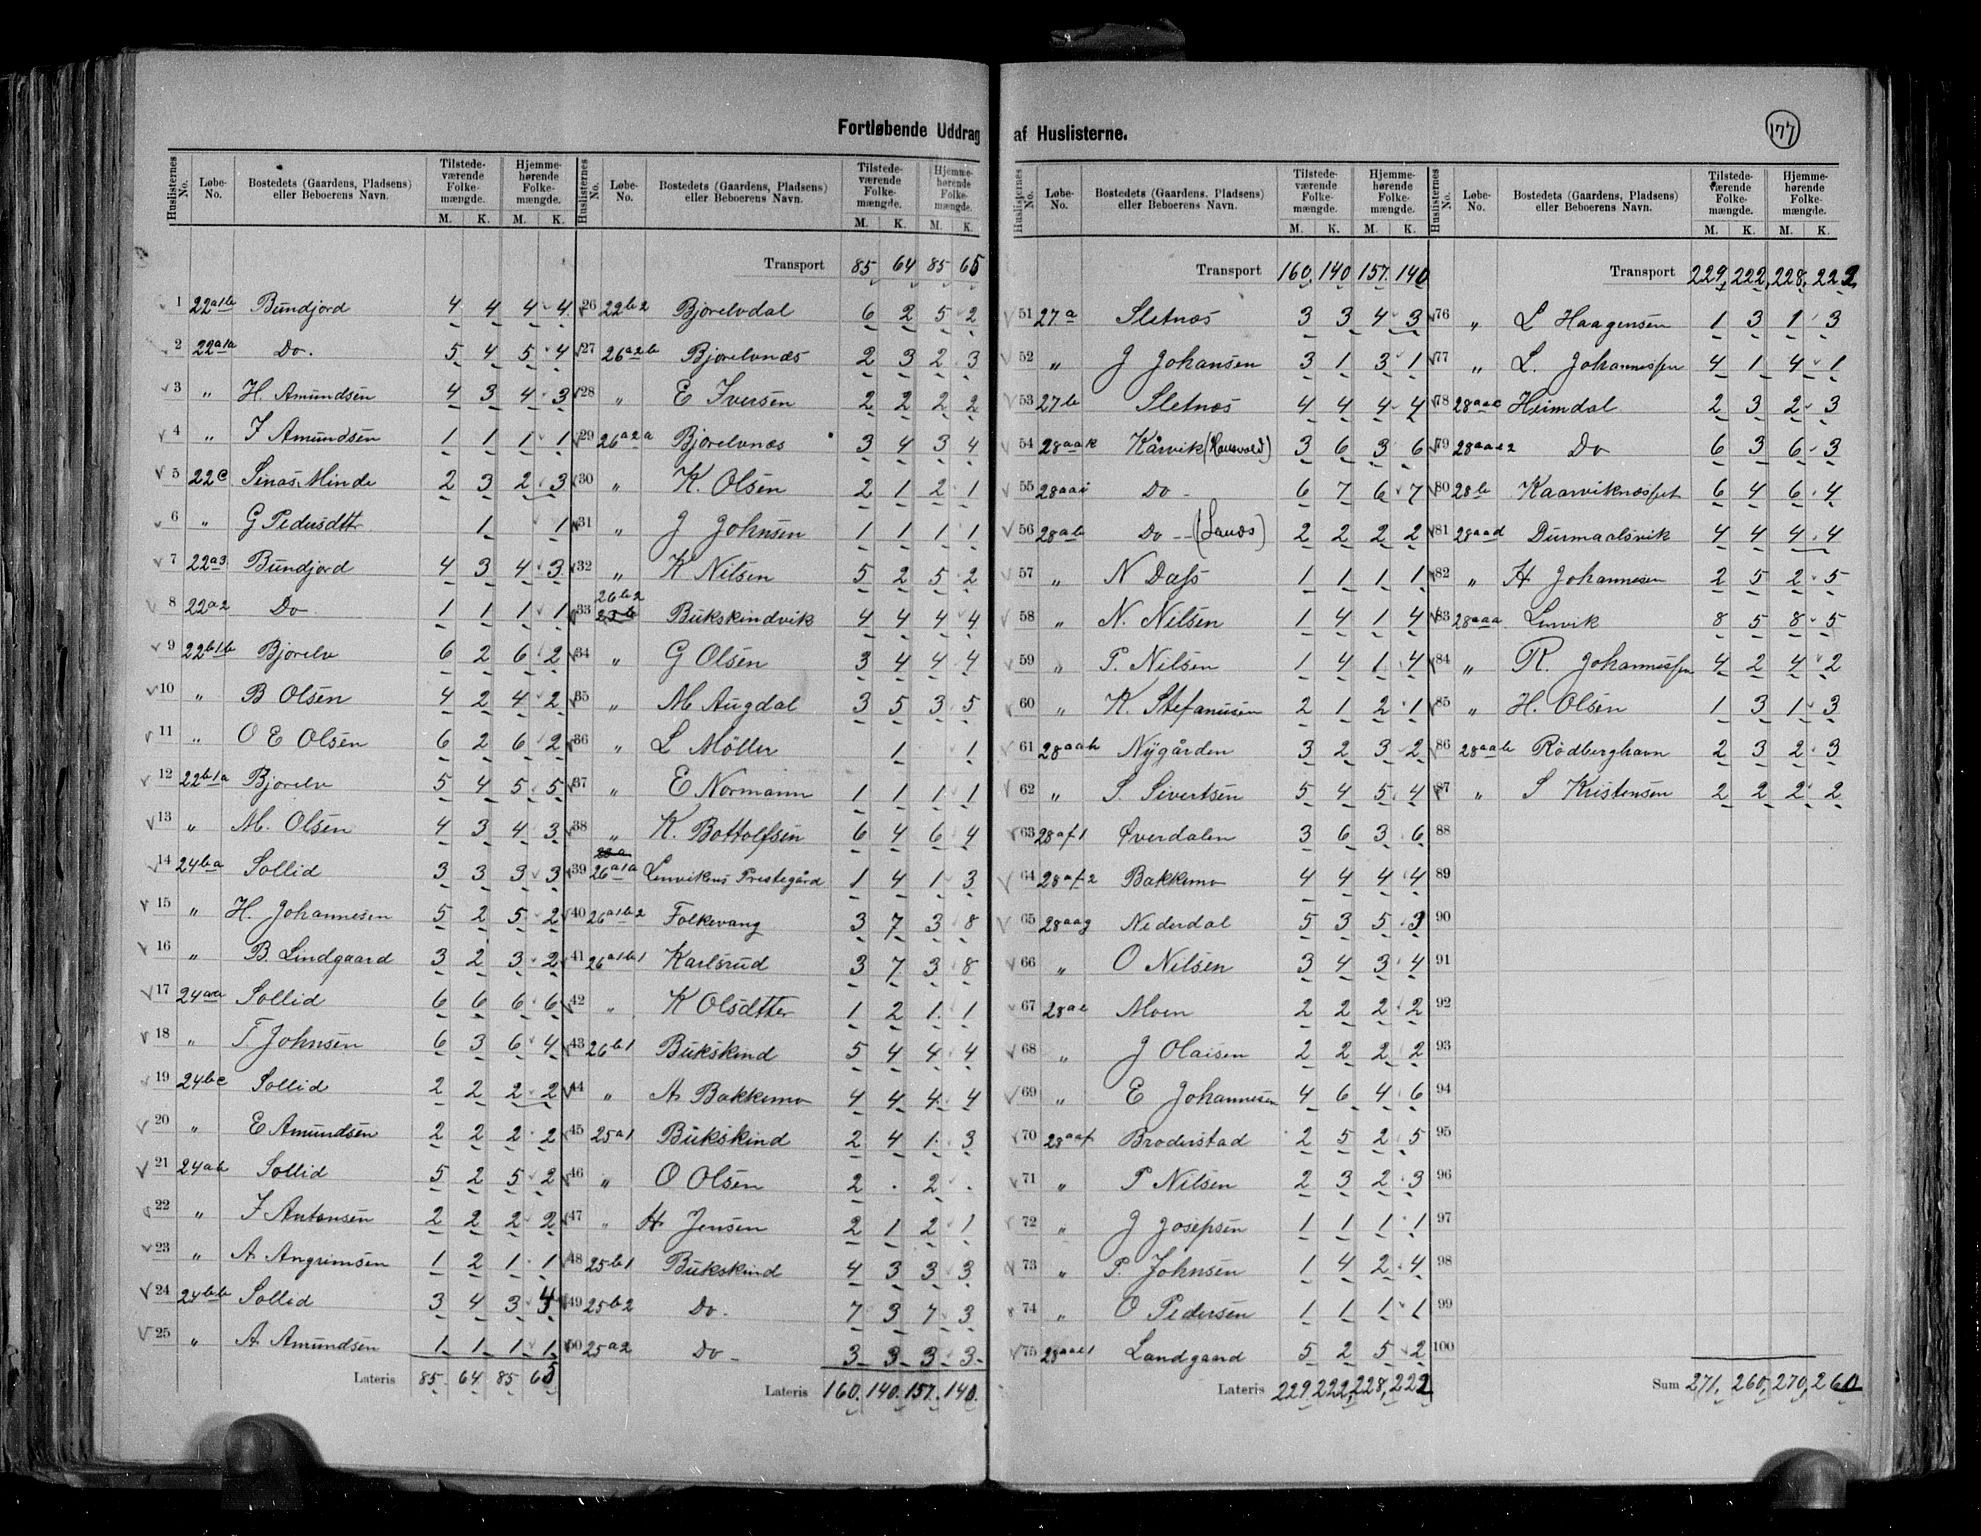 Fortløbende Uddrag af Huslisterne.
177
Huslisternes No. Løbe-No. Bostedets (Gaardens, Pladsens) eller Beboerens Navn. Tilstedeværende Folkemængde. M. K. Hjemmehørende Folkemængde. M. K.
1 22a1b Bundjord 4 4 4 4
2 22a1a Do. 5 4 5 4
3 " H. Amundsen 4 3 4 3
4 " J Amundsen 1 1 1 1
5 22c Sinas Minde 2 3 2 3
6 " G Pedersdtter 1 1
7 22a3 Bundjord 4 3 4 3
8 22a2 Do 1 1 1 1
9 22b1b Bjorelv 6 2 6 2
10 " B Olsen 4 2 4 2
11 " O E Olsen 6 2 6 2
12 22b1a Bjorelv 5 4 5 5
13 " M. Olsen 4 3 4 3
14 24ba Sollid 3 3 3 3
15 " H. Johannesen 5 2 5 2
16 " B. Lindgaard 3 2 3 2
17 24aa Sollid 6 6 6 6
18 " T Johnsen 6 3 6 4
19 24bc Sollid 2 2 2 2
20 " E Amundsen 2 2 2 2
21 24ab Sollid 5 2 5 2
22 " J Antonsen 2 2 2 2
23 " A Angrimsen 1 2 1 1
24 24bb Sollid 3 4 3 4
25 " A Amundsen 1 1 1 1
Lateris 85. 64 85 65
Huslisternes No. Løbe-No. Bostedets (Gaardens, Pladsens) eller Beboerens Navn. Tilstedeværende Folkemængde. M. K. Hjemmehørende Folkemængde. M. K.
Transport 85 64 85 65
26 22b2 Bjorelvdal 6 2 5 2
27 26a2b Bjorelvnæs 2 3 2 3
28 " E Iversen 2 2 2 2
29 26a2a Bjorelvnæs 3 4 3 4
30 " K. Olsen 2 1 2 1
31 " J Johnsen 1 1 1 1
32 " K Nilsen 5 2 5 2
26b2
33 23b Bukskindvik 4 4 4 4
34 " G Olsen 3 4 4 4
35 " M Augdal 3 5 3 5
36 " L Möller 1 1
37 " E Normann 1 1 1 1
38 " K. Bottolfsen 6 4 6 4
39 26a1a Lenvikens Prestegård 1 4 1 3
40 26a1b2 Folkevang 3 7 3 8
41 26a1b1 Karlsrud 3 7 3 8
42 " K Olsdtter 1 2 1 1
43 26b1 Bukskind 5 4 4 4
44 " A Bakkemo 4 4 4 4
45 25a1 Bukskind 2 4 1 3
46 " O Olsen 2 . 2 .
47 " H Jensen 2 1 2 1
48 25b1 Bukskind 4 3 3 3
49 25b2 Do. 7 3 7 3
50 25a2 Do 3 3 3 3
Lateris 160. 140. 157. 140.
Huslisternes No. Løbe-No. Bostedets (Gaardens, Pladsens) eller Beboerens Navn. Tilstedeværende Folkemængde. M. K. Hjemmehørende Folkemængde. M. K.
Transport 160. 140 157. 140
51 27a Sletnæs 3 3 4 3
52 " J Johansen 3 1 3 1
53 27b Sletnæs 4 4 4 4
54 28aak Kårvik 3 6 3 6
55 28aai Do 6 7 6 7
56 28ab Do 2 2 2 2
57 " N Dass 1 1 1 1
58 " N. Nilsen 1 4 1 4
59 " P. Nilsen 1 4 1 4
60 " K. Stefanusen 2 1 2 1
61 28aah Nygården 3 2 3 2
62 " S. Sivertsen 5 4 5 4
63 28af1 Øverdalen 3 6 3 6
64 28af2 Bakkemo 4 4 4 4
65 28aag Nederdal 5 3 5 3
66 " O Nilsen 3 4 3 4
67 28ae Moen 2 2 2 2
68 " J Olaisen 2 2 2 2
69 " E Johannesen 4 6 4 6
70 28aaf Broderstad 2 5 2 5
71 " P Nilsen 2 3 2 3
72 " J Josefsen 1 1 1 1
73 " P. Johnsen 1 4 2 4
74 " O Pedersen 1 1 1 1
75 28aae1 Landgaard 5 2 5 2
Lateris 229. 222, 228, 222
Huslisternes No. Løbe-No. Bostedets (Gaardens, Pladsens) eller Beboerens Navn. Tilstedeværende Folkemængde. M. K. Hjemmehørende Folkemængde. M. K.
Transport 229, 222, 228, 222
76 " L Haagensen 1 3 1 3
77 " L. Johannessen 4 1 4 1
78 28aac Heimdal 2 3 2 3
79 28aae2 Do 6 3 6 3
80 28b Kaarviknæsset 6 4 6 4
81 28aad Durmaalsvik 4 4 4 4
82 " H Johannesen 2 5 2 5
83 28aaa Lenvik 8 5 8 5
84 " R. Johannessen 4 2 4 2
85 " H. Olsen 1 3 1 3
86 28aab Rødberghavn 2 3 2 3
87 " S Kristensen 2 2 2 2
88
89
90
91
92
93
94
95
96
97
98
99
100
Sum 271, 260, 270, 260